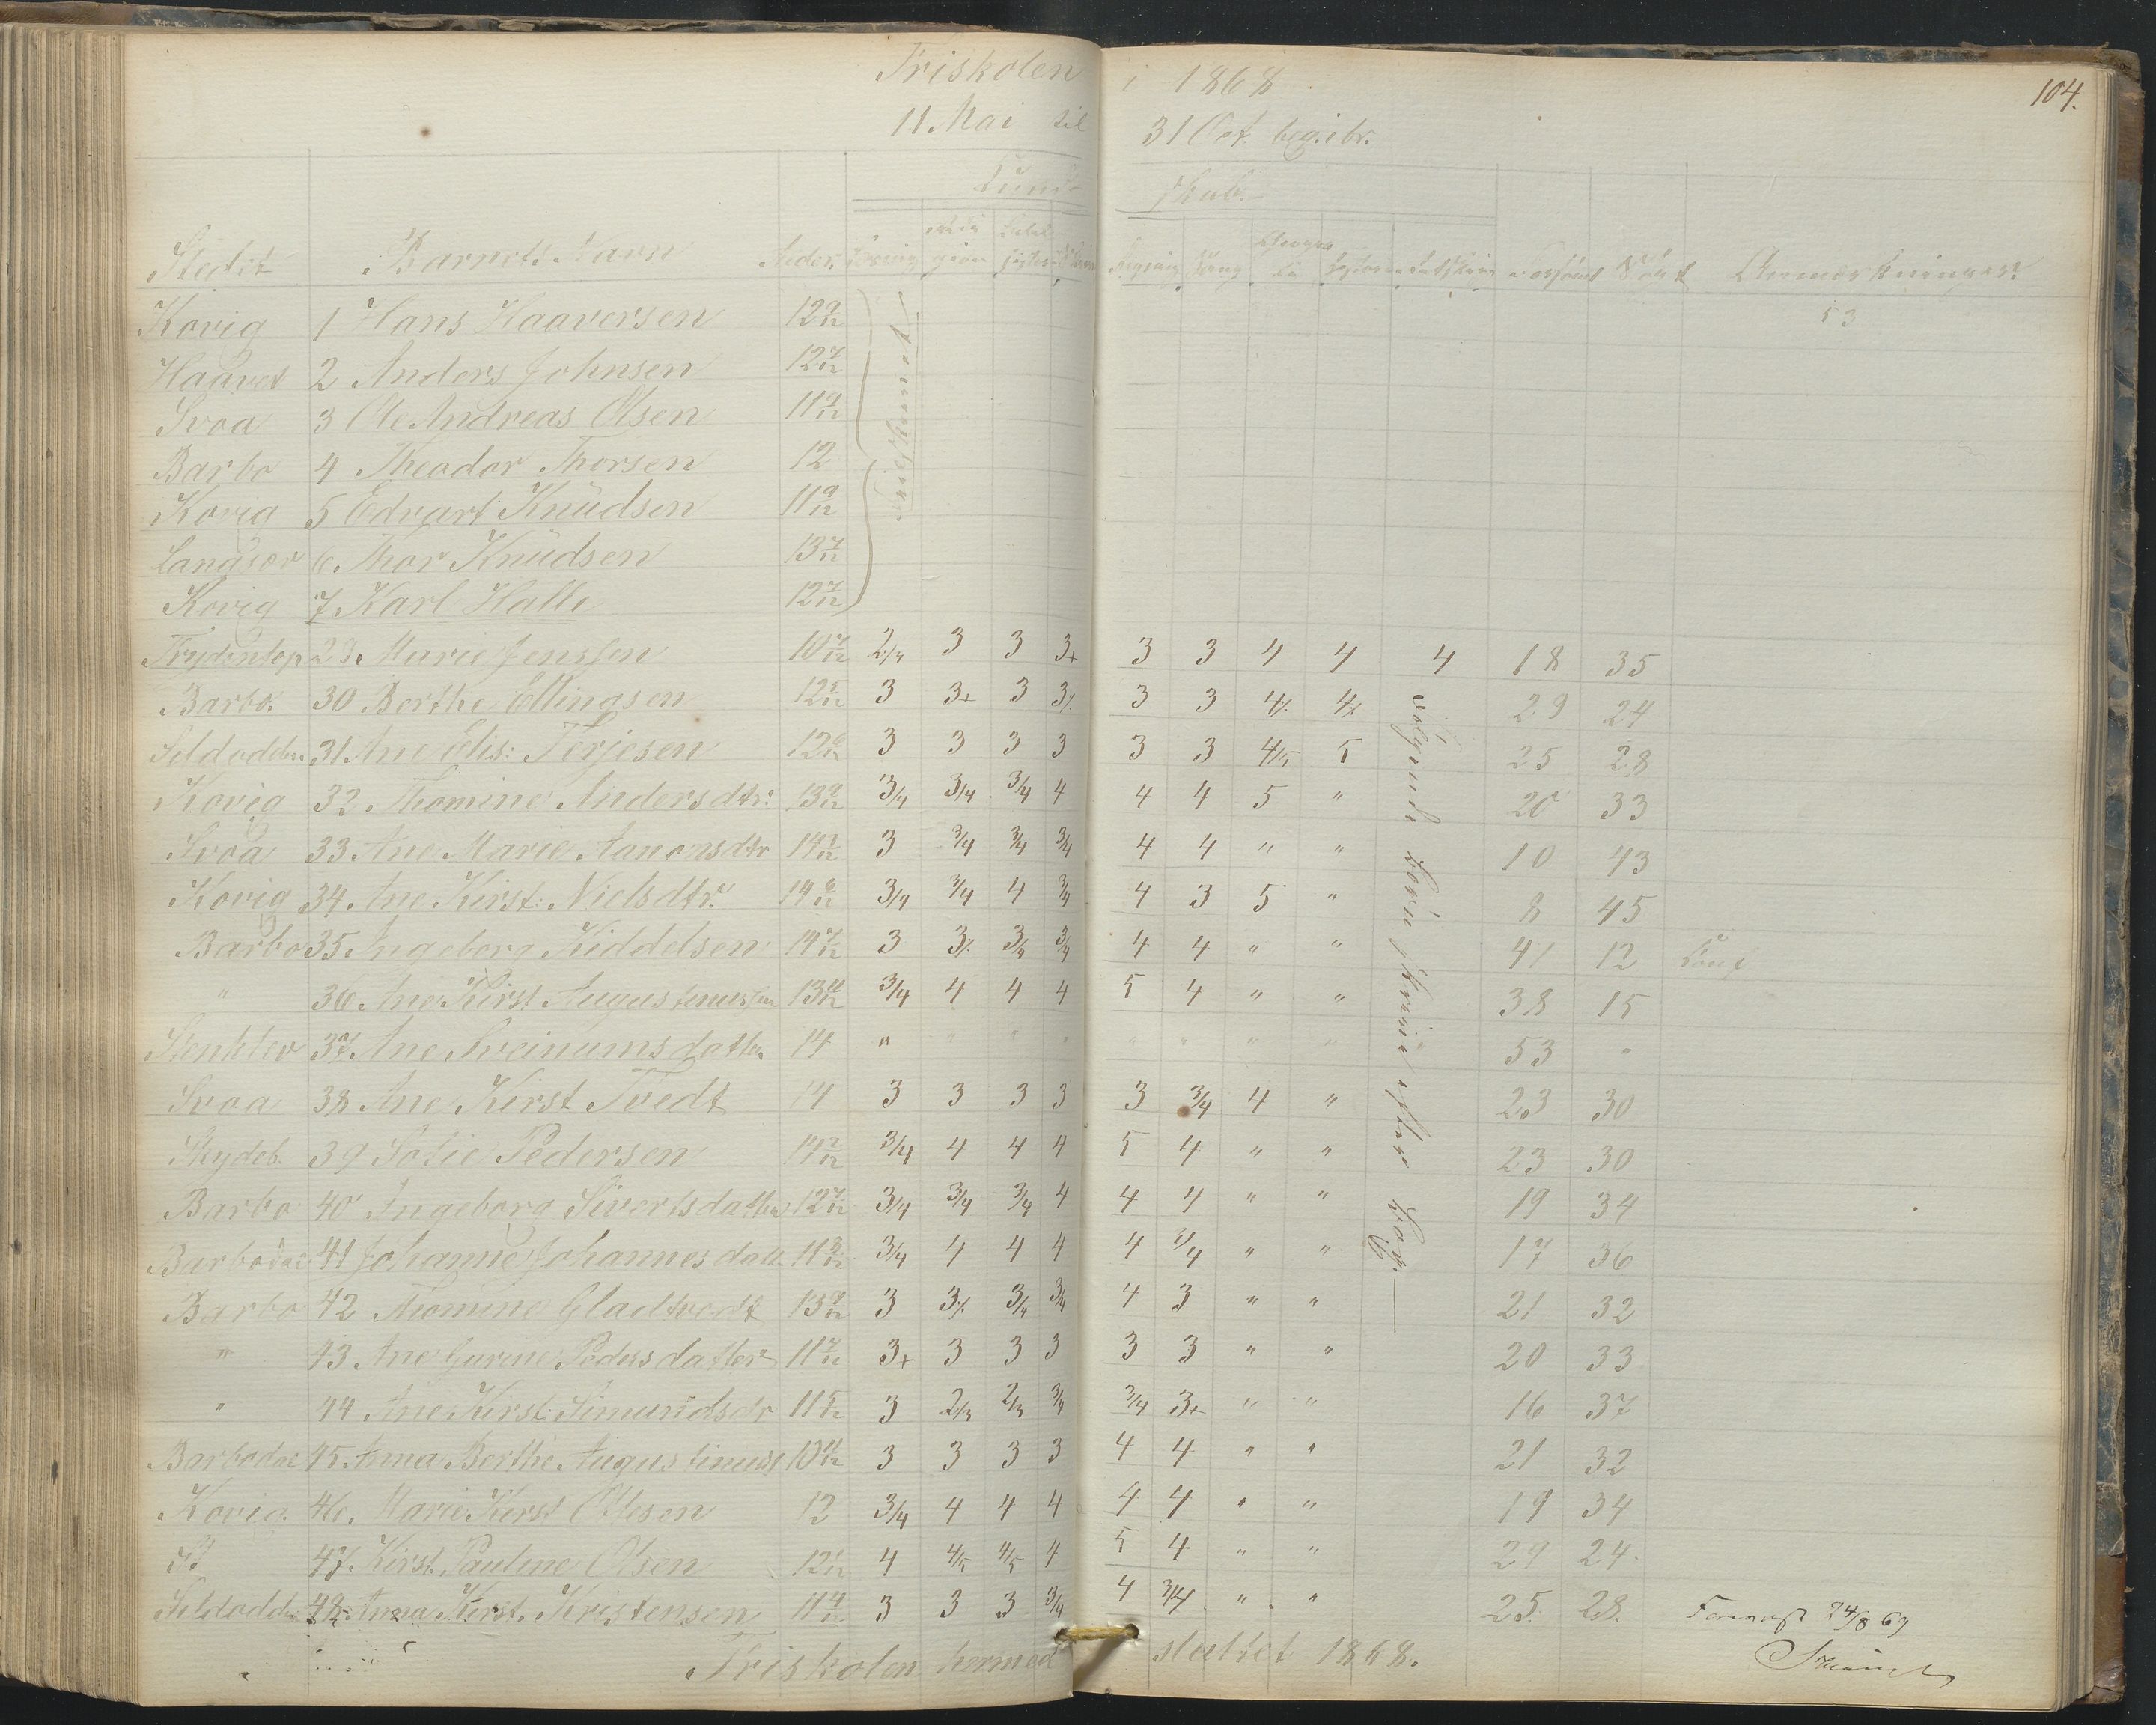 104.
Friskolen i 1868
11. Mai til 31 Oct. beg. ibr.
Kund- skab.
Stedet Barnets Navn Alder. Læsning Religion Bibelhistorie Skrivning Regning Sang Geographie Historie Retskrivn. Forsømt Mødt Anmærkninger.
Kovig 1 Hans Haaversen 12 9/12 53
Haavet 2 Anders Johnsen 12 7/12
Svoa 3 Ole Andreas Olsen 11 9/12
Barbo 4 Theodor Thorsen 12
Kovig 5 Edvart Knudsen 11 9/12
Langsæv 6 Thor Knudsen 13 7/12
Kovig 7 Karl Halle 12 7/12
29. Marie Jenssen 10 7/12 2/3 3 3 3+ 3 3 4 4 4 18 35
Barbo. 30 Berthe Ellingsen 12 5/12 3 3+ 3 3% 3 3 4% 4% 29 24
Sildodden 31 Ane Elis: Terjesen 12 3 3 3 3 3 3 4/5 5 25 28
Kovig 32 Thomine Andersdtr: 13 9/12 3/4 3/4 3/4 4 4 4 5 " 20 33
Svoa 33 Ane Marie Aanonsdtr 14 3 3/4 3/4 3/4 4 4 " " 10 43
Kovig 34 Ane Kirst: Nielsdtr. 14 3/4 3/4 4 3/4 4 3 5 " 8 45
Barbo 35 Ingeborg Kiddelsen 14 7/12 3 3% 3/4 3/4 4 4 " " 41 12 Conf
" 36 Ane Kirst Augustinussen 13 3/4 4 4 4 5 4 " " 38 15
Stenklev 37 Ane Sveinumsdatter 14 " " " " " " " " 53 "
Svoa 38 Ane Kirst Tvedt 14 3 3 3 3 3 3/4 4 " 23 30
Skydeb. 39 Sofie Pedersen 14 3/4 4 4 4 5 4 " " 23 30
Barbo 40 Ingeborg Sivertsdatter 12 7/12 3/4 3/4 3/4 4 4 4 " " 19 34
41 Johanne Johannesdatt. 11 3/12 3/4 4 4 4 4 3/4 " " 17 36
Barbo 42 Thomine Gladtvedt 13 9/12 3 3% 3/4 3/4 4 3 " " 21 32
" 43 Ane Gurine Pedersdatter 11 7/12 3+ 3 3 3 3 3 " " 20 33
" 44 Ane Kirst: Simundsdr 11 5/12 3 2/3 2/3 3/4 3/4 3+ " " 16 37
45 Anna Berthe Augustinuss 10 11/12 3 3 3 3 4 4 " " 21 32
Kovig. 46. Marie Kirst Olsen 12 3/4 4 4 4 4 4 " " 19 34
47. Kirst. Pauline Olsen 12 4 4/5 4/5 4 5 4 " " 29 24
Sildodd. 48 Anna Kirst. Kristensen 11 4/12 3 3 3 3/4 4 3/4 " " 25 28.
følgende kun skrive efter Bog. —
Forevist 24/8 69
Friskolen hermed sluttet 1868.